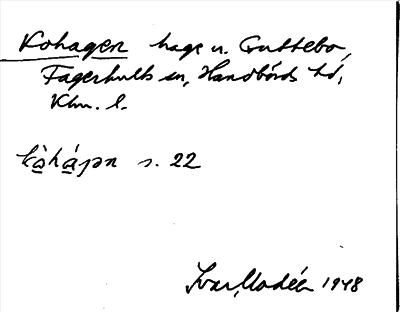 Kohagen hage u. Guttebo,
Fagerhults sn, Handbörds hd,
Klm. l.
kò̱há̱ɡən s. 22
Ivar Modéer 1948